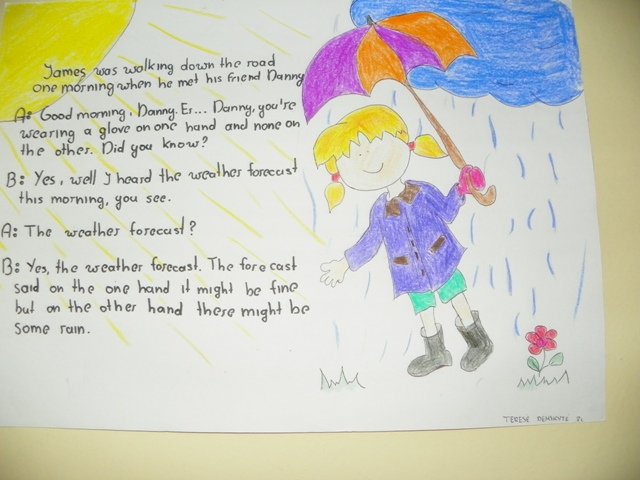 James was walking down the road
one morning when he met his friend Danny
A: Good morning, Danny. Er... Danny, you're
wearing a glove on one hand and none on
the other. Did you know?
B: Yes, well I heard the weather forecast
this morning, you see.
A: The weather forecast?
B: Yes, the weather forecast. The forecast
said on the one hand it might be fine
but on the other hand there might be
some rain.
TERESE